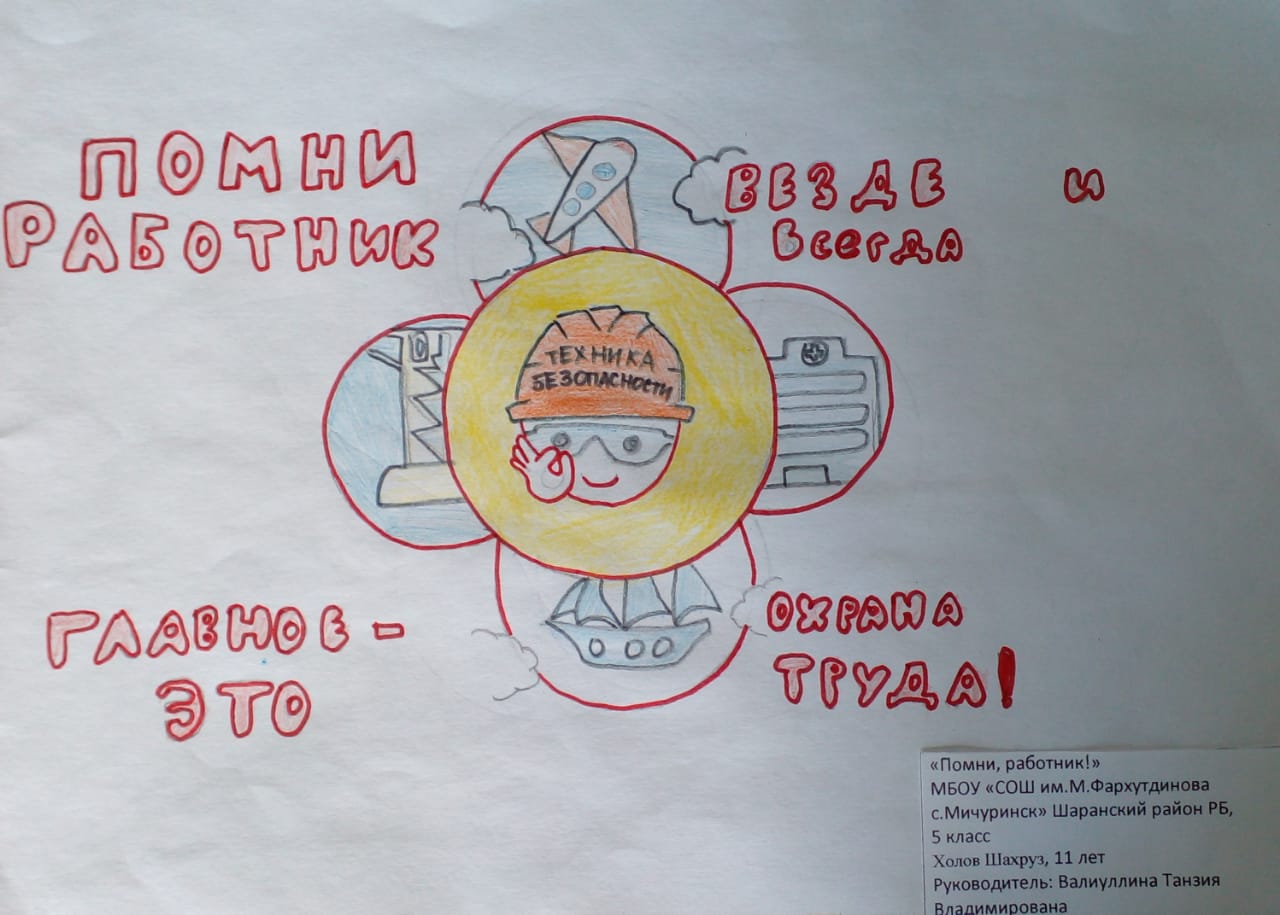 ПОМНИ
РАБОТНИК
ВЕЗДЕ И
Всегда
ТЕХНИКА
БЕЗОПАСНОСТИ
ГЛАВНОЕ -
ЭТО
ОХРАНА
ТРУДА!
«Помни, работник!»
МБОУ «СОШ им.М.Фархутдинова
с.Мичуринск» Шаранский район РБ,
5 класс
Холов Шахруз, 11 лет
Руководитель: Валиуллина Танзия
Владимирована